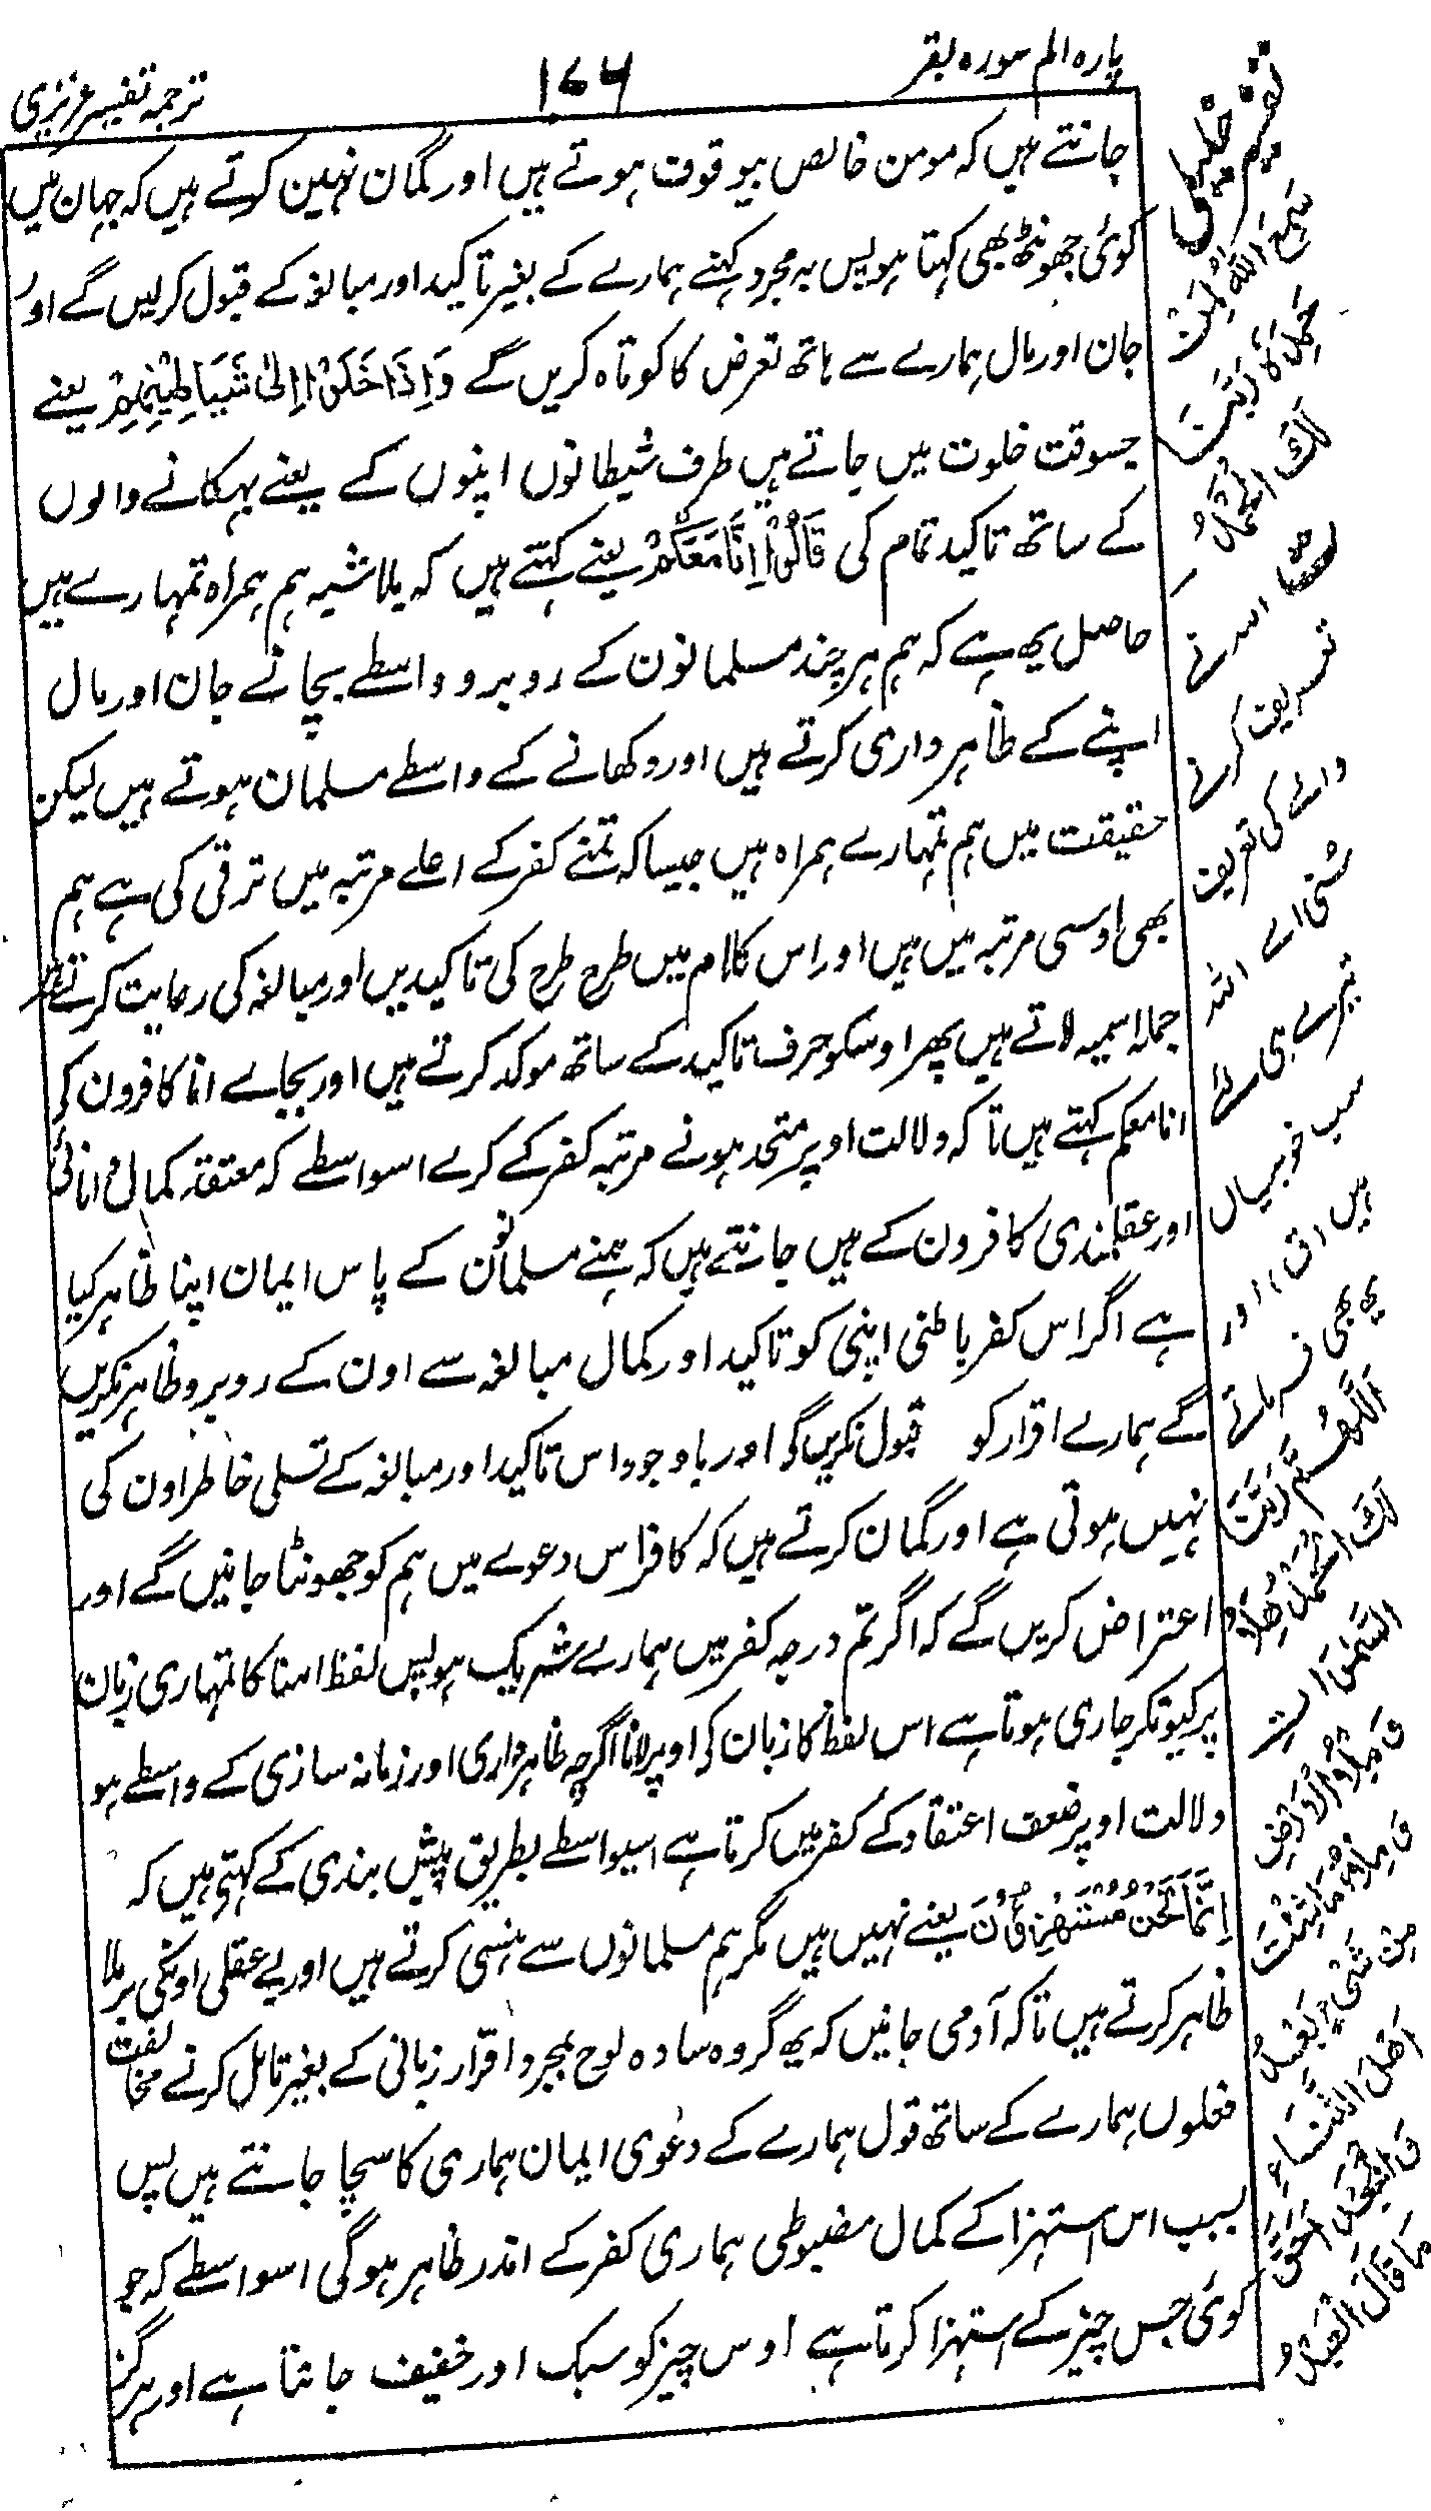 پارہ الم سورہ بقر
۱۷۶
ترجمہ تفسیر عزیزی
جانتے ہیں کہ مومن خالص بیوقوف ہوتے ہیں اور گمان نہین کرتے ہیں کہ جہان میں
کوئی جھونٹھ بھی کہتا ہو پس بہ مجرد کہنے ہمارے کے بغیر تاکید اور مبالغہ کے قبول کرلیں گے اور
جان اور مال ہمارے سے ہاتھ تعرض کا کوتاہ کریں گے وَاِذَا خَلَوْا اِلیٰ شَیَاطِیْنِهِمْ یعنے
جسوقت خلوت میں جاتے ہیں طرف شیطانوں اپنوں کے یعنے بہکانے والوں
کے ساتھ تاکید تمام کی قَالُوْٓا اِنَّا مَعَكُمْ یعنے کہتے ہیں کہ بلا شبہ ہم ہمراہ تمہارے ہیں
حاصل یھ ہے کہ ہم ہر چند مسلمانون کے روبرو واسطے بچانے جان اور مال
اپنے کے ظاہر داری کرتے ہیں اور دکھانے کے واسطے مسلمان ہوتے ہیں لیکن
حقیقت میں ہم تمہارے ہمراہ ہیں جیسا کہ تمنے کفر کے اعلے مرتبہ میں ترقی کی ہے ہم
بھی اوسی مرتبہ میں ہیں اور اس کلام میں طرح طرح کی تاکیدیں اور مبالغہ کی رعایت کرتے
جملہ اسمیہ لاتے ہیں پھر اوسکو حرف تاکید کے ساتھ موکد کرتے ہیں اور بجاے انا کافرون کی
انا معکم کہتے ہیں تا کہ دلالت اوپر متحد ہونے مرتبہ کفر کے کرے اسواسطے کہ معتقد کمال دانائی
اور عقلمندی کافرون کے ہیں جانتے ہیں کہ ہمنے مسلمانوں کے پاس ایمان اپنا ظاہر کیا
ہے اگر اس کفر باطنی اپنی کو تاکید اور کمال مبالغہ سے اون کے روبرو ظاہر نکریں
گے ہمارے اقرار کو قبول نکریں گی اور باوجود اس تاکید اور مبالغہ کے تسلی خاطر اون کی
نہیں ہوتی ہے اور گمان کرتے ہیں کہ کافر اس دعوے میں ہم کو جھونٹا جانیں گے اور
اعتراض کریں گے کہ اگر تم درجہ کفر میں ہمارے شریک ہو پس لفظ امنا کا تمہاری زبان
پر کیونکر جاری ہوتا ہے اس لفظ کا زبان کی اوپر لانا اگرچہ ظاہر داری اور زمانہ سازی کے واسطے ہو
دلالت اوپر ضعف اعتقاد کے کفر میں کرتا ہے اسیواسطے بطریق پیش بندی کے کہتی ہیں کہ
اِنَّمَا نَحْنُ مُسْتَهْزِءُوْنَ یعنے نہیں ہیں مگر ہم مسلمانوں سے ہنسی کرتے ہیں اور بے عقلی اونکی برملا
ظاہر کرتے ہیں تا کہ آدمی جانیں کہ یھ گروہ سادہ لوح بمجرد اقرار زبانی کے بغیر تامل کرنے مخالفت
فعلوں ہمارے کے ساتھ قول ہمارے کے دعوی ایمان ہماری کا سچا جانتے ہیں پس
بسبب اس استہزا کے کمال مضبوطی ہماری کفر کے اندر ظاہر ہو گی اسواسطے کہ جو
کوئی جس چیز کے استہزا کرتا ہے اوس چیز کو سبک اور خفیف جانتا ہے اور ہرگز
سَمِعَ اللّٰهُ لِمَنْ
حَمِدَهٗ رَبَّنَا
لَكَ الْحَمْدُ
تعریف کرنے
والے کی تعریف
سنی اے اللہ
تیرے ہی لئے
سب خوبیاں
ہیں
یھ بھی فرماتے
اَللّٰهُمَّ رَبَّنَا
لَكَ الْحَمْدُ مِلْاَ
السَّمٰوٰاتِ
وَ مِلْاَ الْاَرْضِ
وَ مِلْاَ مَا شِئْتَ
مِنْ شَیْءٍ بَعْدُ
اَهْلَ الثَّنَاءِ
وَ الْمَجْدِ اَحَقُّ
مَا قَالَ الْعَبْدُ